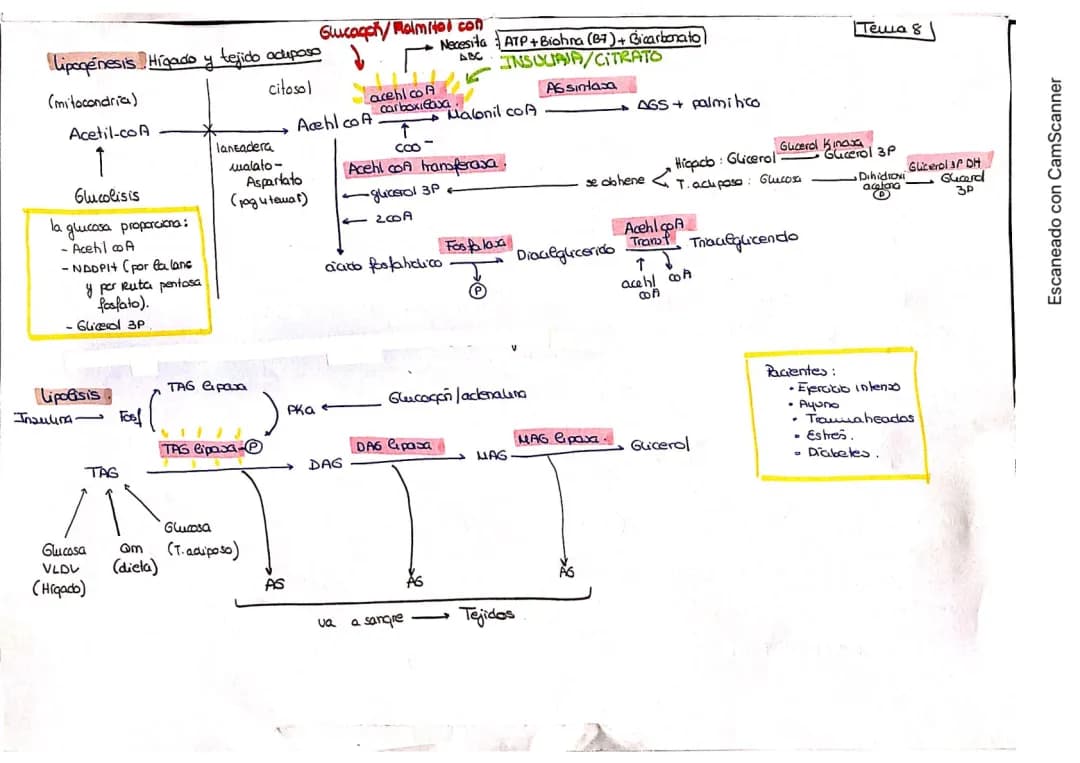 Tema 8
Glucagón/Palmitoil coA
Necesita: ATP + Biotina (B7) + Bicarbonato
ABC
INSULINA/CITRATO
Lipogénesis. Hígado y tejido adiposo
(mitocondria)
citosol
acetil coA
carboxilasa.
AG sintasa
Acetil-coA
Acetil coA
Malonil coA
AGS + palmítico
COO-
lanzadera
malato-
Aspartato
Glucolisis
la glucosa proporciona:
- Acetil coA
y por ruta pentosa
fosfato).
- Glicerol 3P
Acetil coA transferasa.
glicerol 3P
2coA
se obtiene
Hígado: Glicerol
Glicerol Kinasa
Glicerol 3P
T. adiposo: Glucosa
Dihidroxi
acetona
P
Glicerol 3P DH
Glicerol
3P
ácido fosfatídico
Fosfatasa
P
Diacilglicerido
Acetil coA
Transf
acetil
coA
coA
Triacilglicerido
Lipolisis.
Insulina
Fosf
TAG lipasa
PKa
Glucagón/adrenalina
TAG lipasa-P
TAG
DAG
DAG lipasa
MAG
MAG lipasa.
Glicerol
Glucosa
VLDL
(Hígado)
Qm
(dieta)
Glucosa
(T. adiposo)
AG
AG
AG
va a sangre
Tejidos
Pacientes:
• Ejercicio intenso
• Ayuno
• Traumaheados
• Estrés.
• Diabetes.
Escaneado con CamScanner